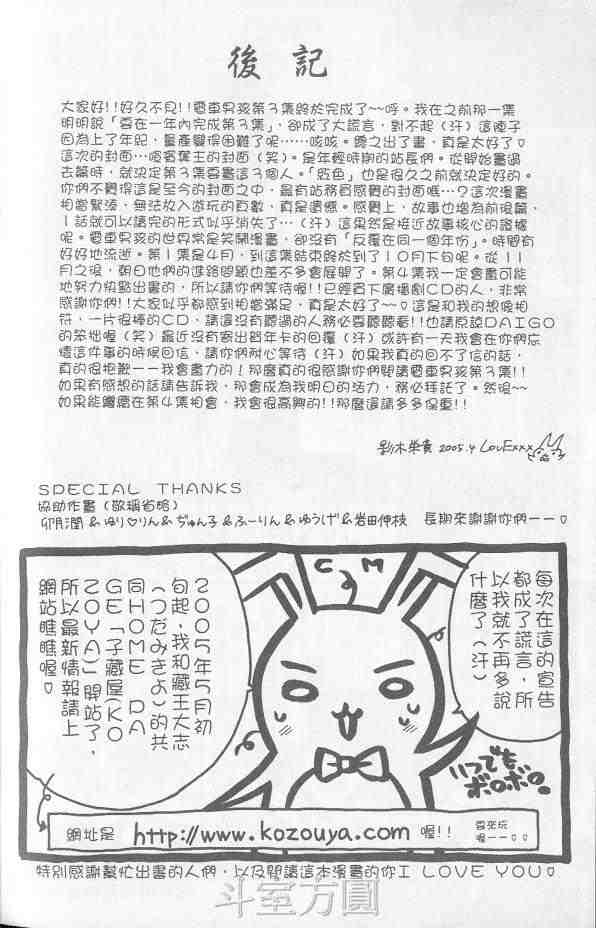 後記
大家好!!好久不見!!電車男孩第3集終於完成了~~呼。我在之前那一集
明明說「要在一年內完成第3集」,卻成了大謊言,對不起(汗)這陣子
因為上了年紀,量產變得困難了呢……咳咳。總之出了書,真是太好了♡
這次的封面…唔賓養王的封面(笑)。是年輕時期的站長們。從開始畫過
去篇時,就決定第3集要畫這3個人。「藍色」也是很久之前就決定好的。
你們不覺得這是至今的封面之中,最有站務員感覺的封面嗎…?這次漫畫
相當緊湊,無法放入遊玩的頁數,真是遺憾。感覺上,故事也增為前後篇,
1話就可以讀完的形式似乎消失了…(汗)這果然是接近故事核心的證據
呢。電車男孩的世界常是笑鬧漫畫,卻沒有「反覆在同一個年份」。時間有
好好地流逝。第1集是4月,到這集結束終於到了10月下旬呢。從11
月之後,朝日他們的進路問題也差不多會展開了。第4集我一定會盡可能
地努力快點出書的,所以請你們等待喔!!已經買下廣播劇CD的人,非常
感謝你們!!大家似乎都感到相當滿足,真是太好了~♡這是和我的想像相
符,一片很棒的CD,請還沒有聽過的人務必要聽聽看!!也請原諒DAIGO
的笨拙喔(笑)最近沒有寄出賀年卡的回覆(汗)或許有一天我會在你們忘
懷這件事的時候回信,請你們耐心等待(汗)如果我真的回不了信的話,
真的很抱歉——我會盡力的!那麼真的很感謝你們閱讀電車男孩第3集!!
如果有感想的話請告訴我,那會成為我明日的活力,務必拜託了。然後~~
如果能繼續在第4集相會,我會很高興的!!那麼還請多多保重!!
影木栄貴 2005.4 LovExxx
SPECIAL THANKS
協助作畫(敬稱省略)
卯月潤&ゆり♡りん&ぢゅん子&ふーりん&ゆうげ&岩田伸枝 長期來謝謝你們——♡
每次在這的宣告
都成了謊言,所
以我就不再多說
什麼了(汗)
C M
2005年5月初
旬起,我和藏王大志
(つだみきよ)的共
同HOME PA
GE「子藏屋(KO
ZOUYA)開站了,
所以最新情報請上
網站瞧瞧喔♡
いつでも
ボロボロ。
網址是 http://www.kozouya.com 喔!! 要來玩
喔——♡♡
特別感謝幫忙出書的人們,以及閱讀這本漫畫的你I LOVE YOU♡
斗室方圓